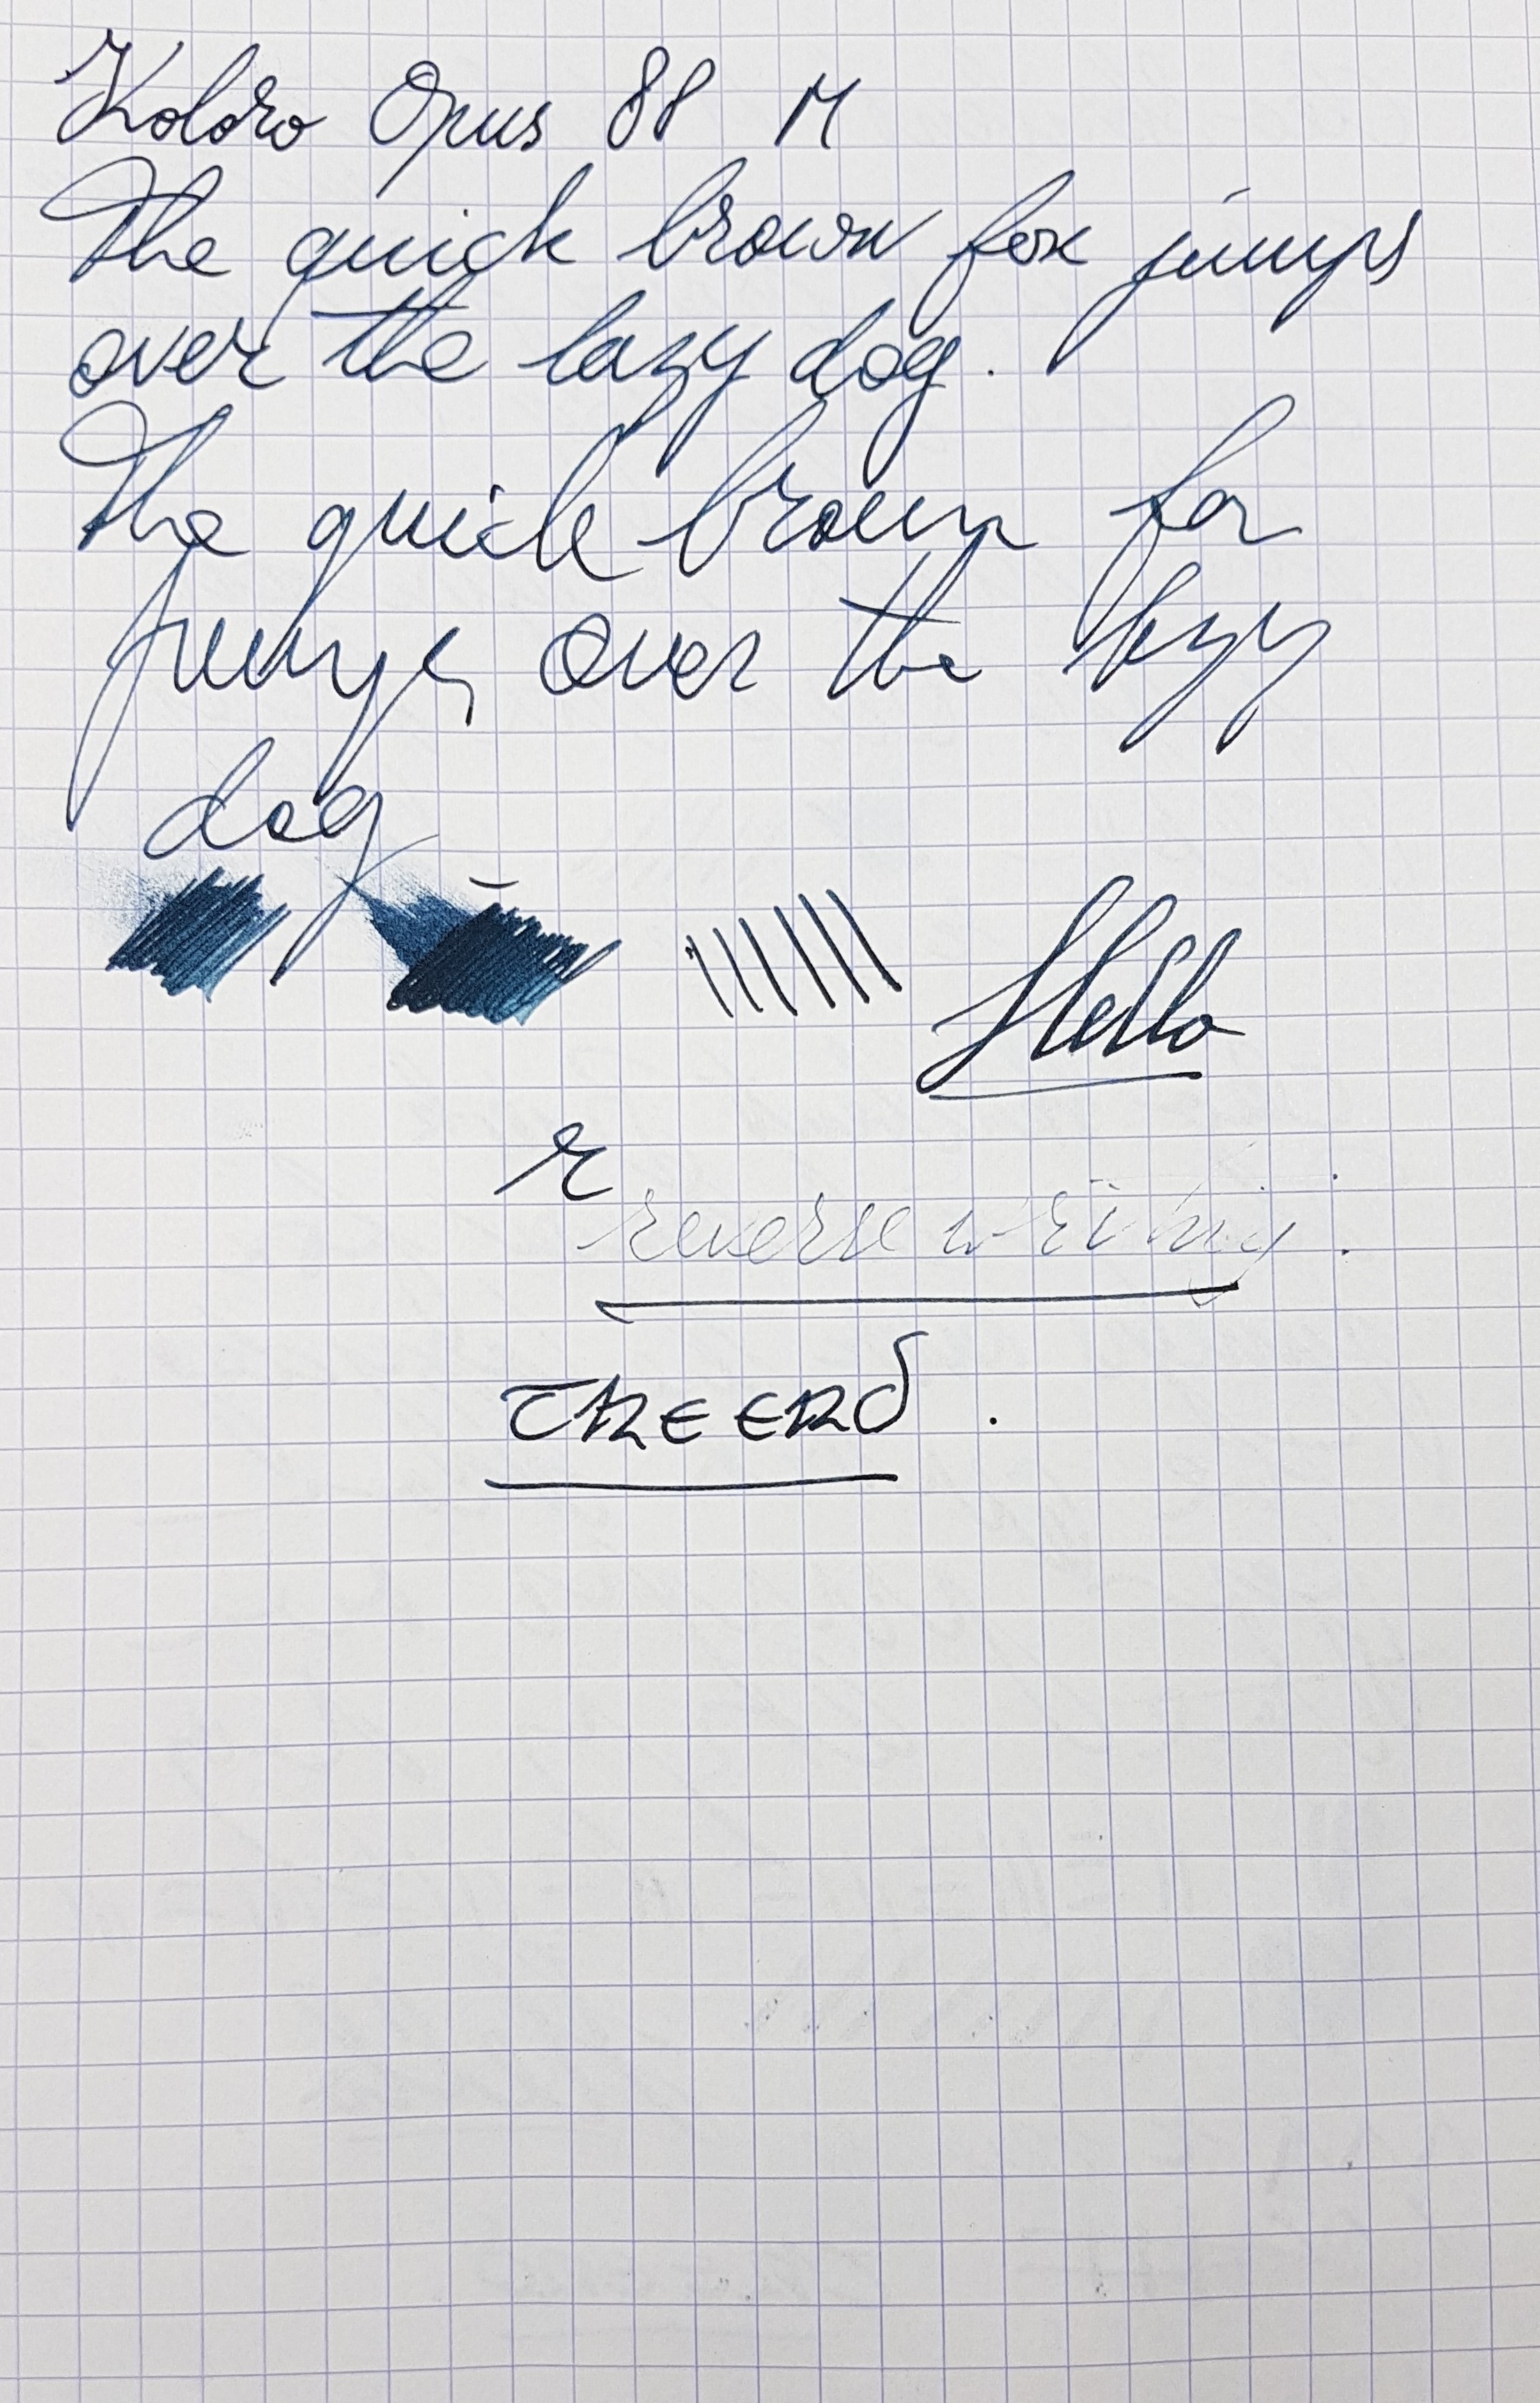 Koloro Opus 88 M
The quick brown fox jumps
over the lazy dog.
The quick brown fox
jumps over the lazy
dog
Hello
r
reverse writing.
THE END.